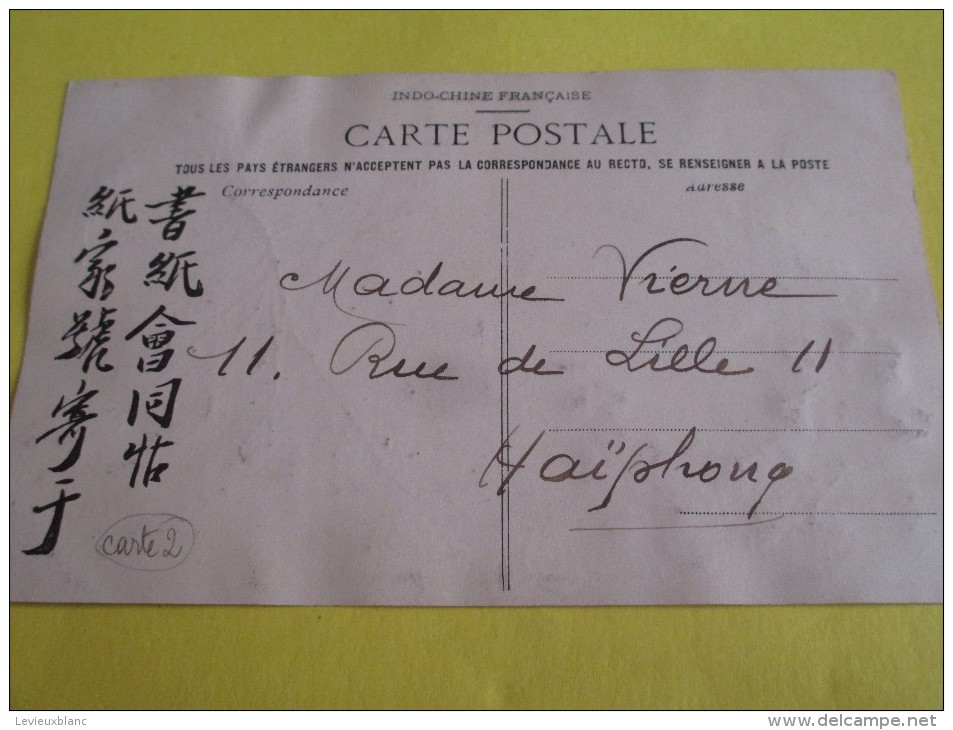 INDO-CHINE FRANÇAISE
CARTE POSTALE
TOUS LES PAYS ÉTRANGERS N'ACCEPTENT PAS LA CORRESPONDANCE AU RECTO, SE RENSEIGNER A LA POSTE
Correspondance
Adresse
書紙會同帖
紙家號寄于
Madame Vierne
11. Rue de Lille 11
Haïphong
carte 2
Levieuxblanc
http://www.delcampe.net